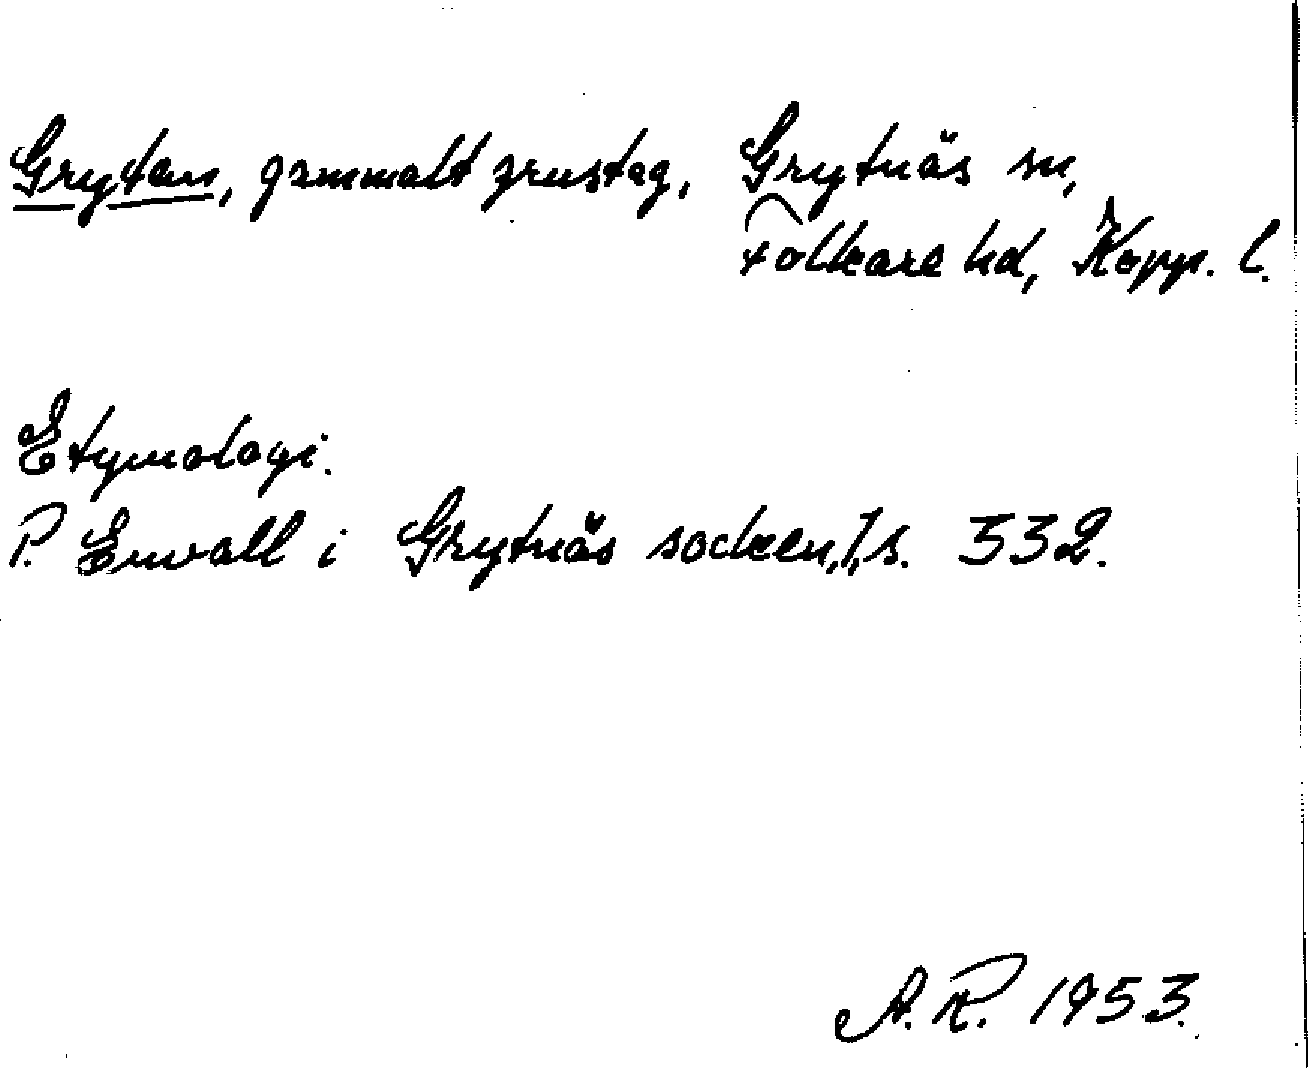 Grytan, gammalt grustag, Grytnäs sn,
Folkare hd, Kopp. l.
Etymologi.
P. Envall i Grytnäs socken, 1, s. 332.
A. R. 1953.